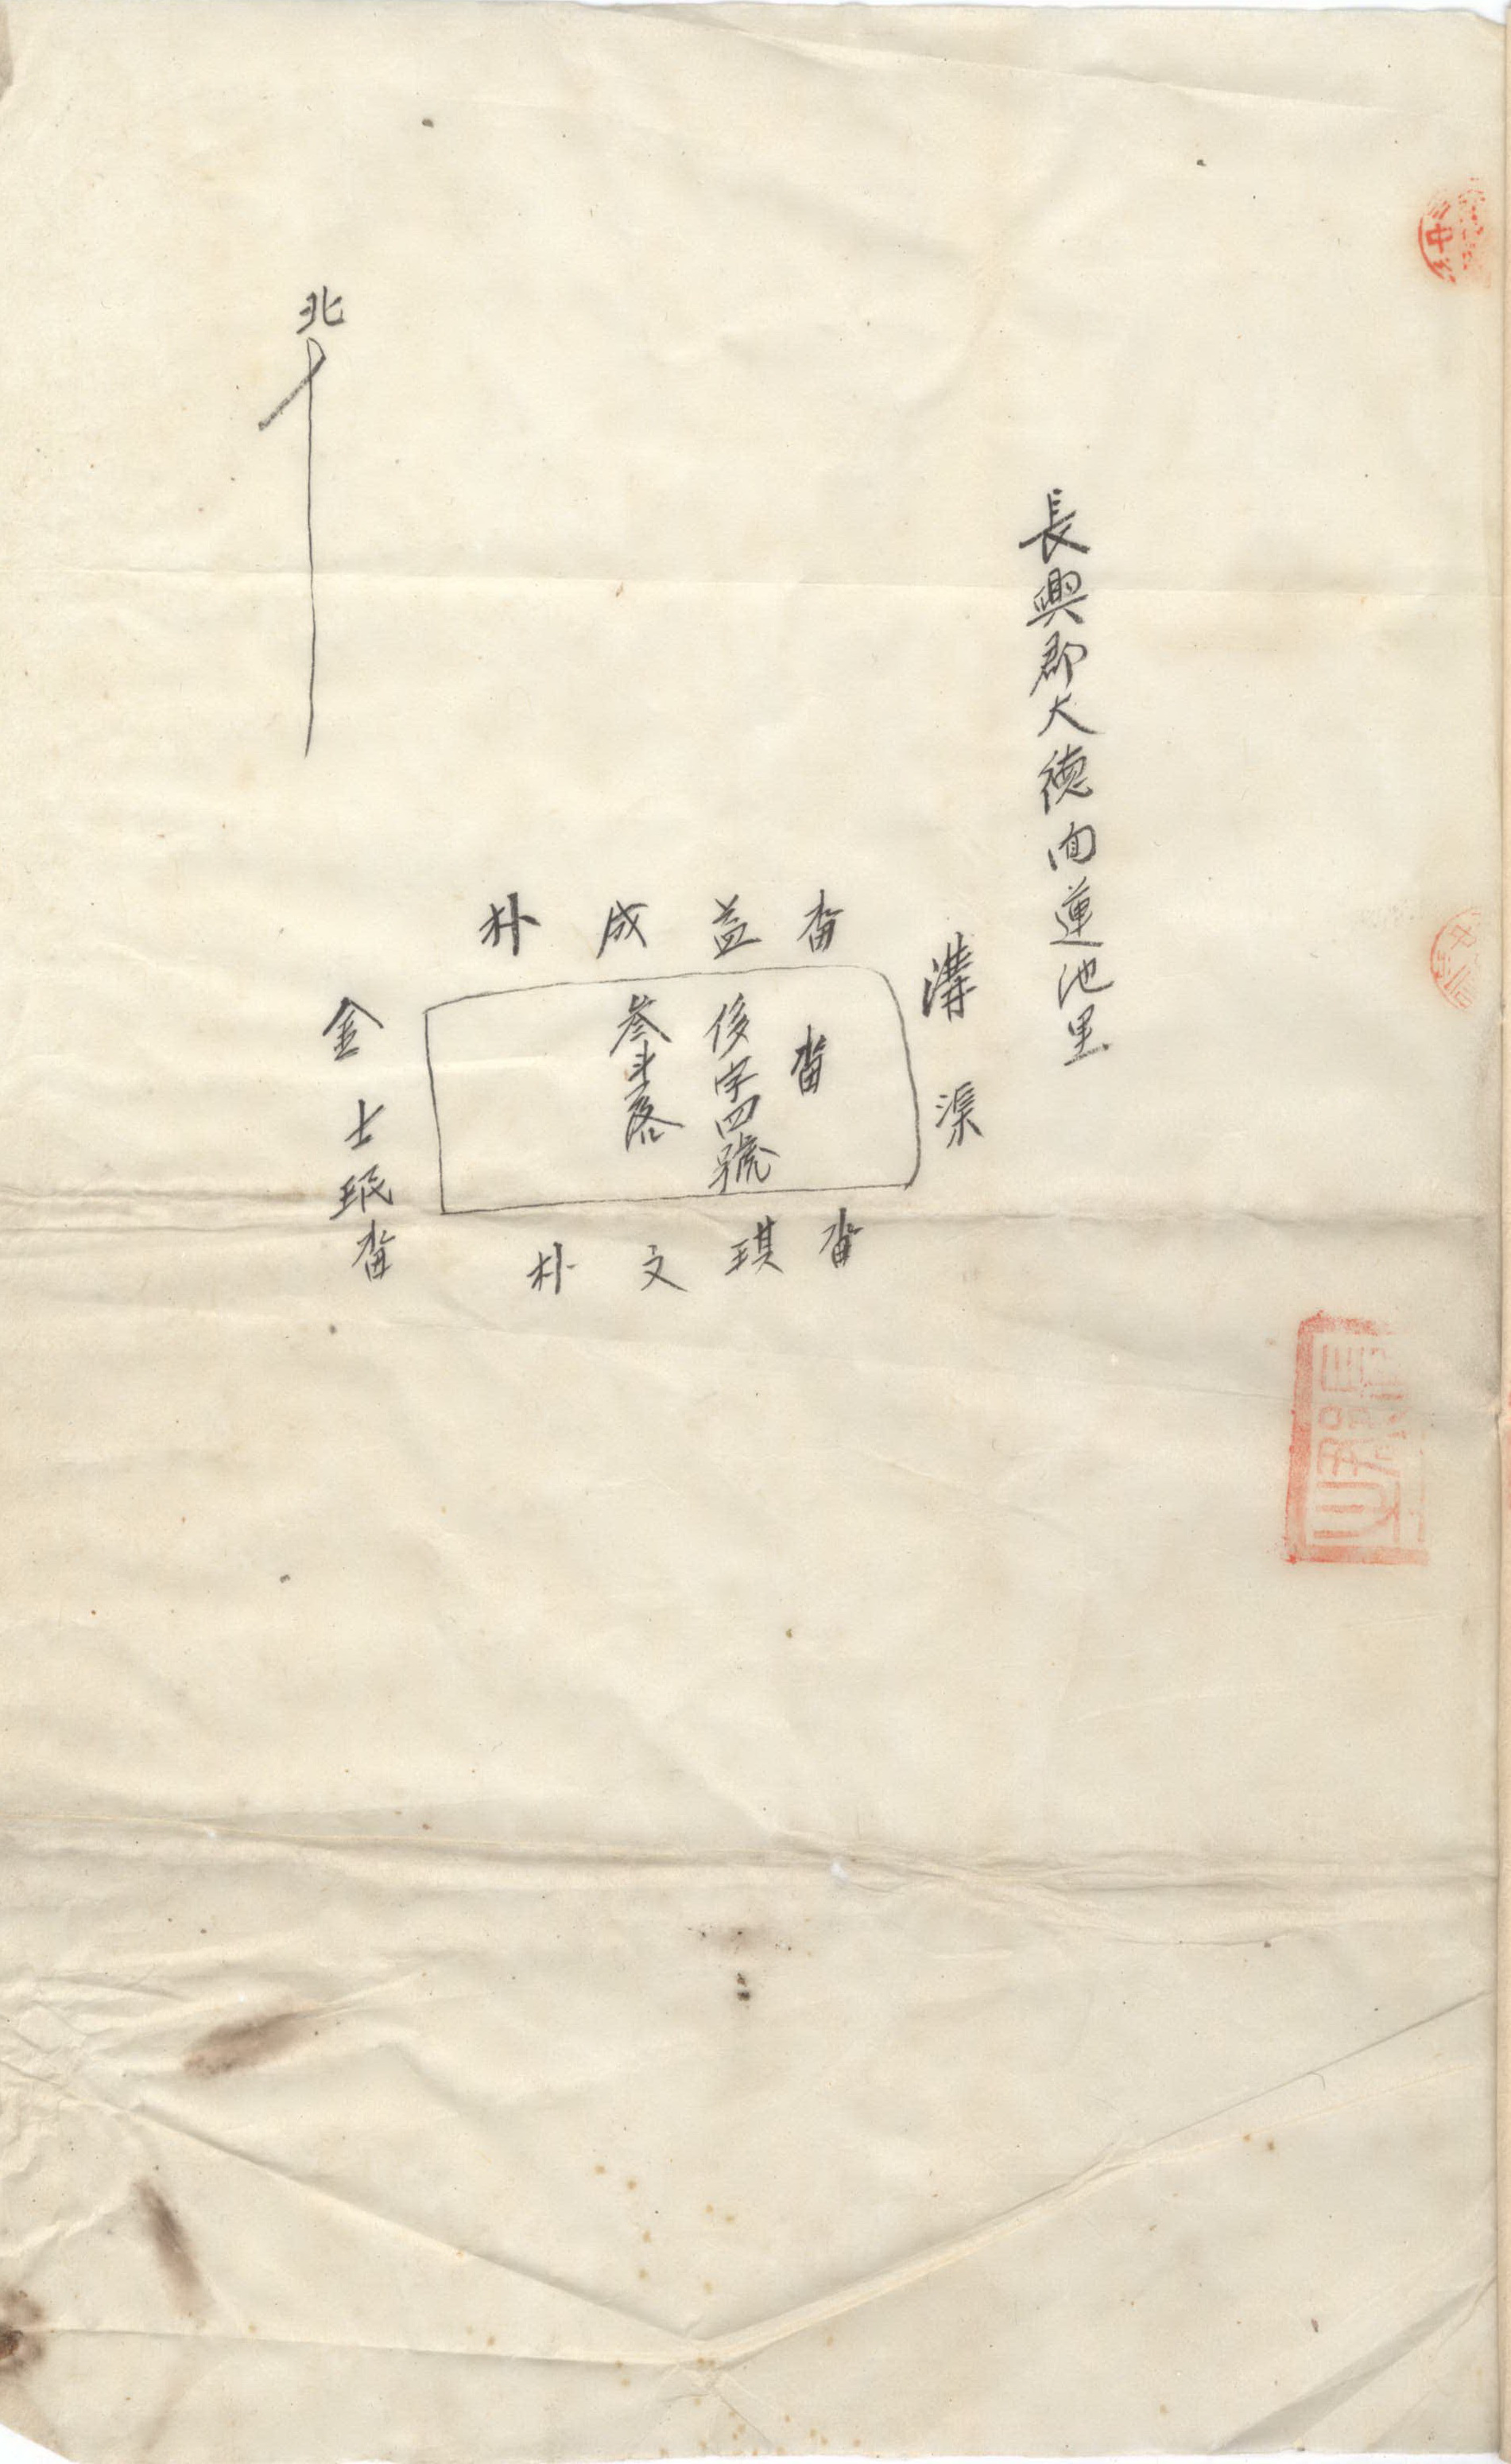 長興郡大德面蓮池里
北
溝渠
朴成益畓
畓
後字四號
參斗落
朴文琪畓
金士珉畓